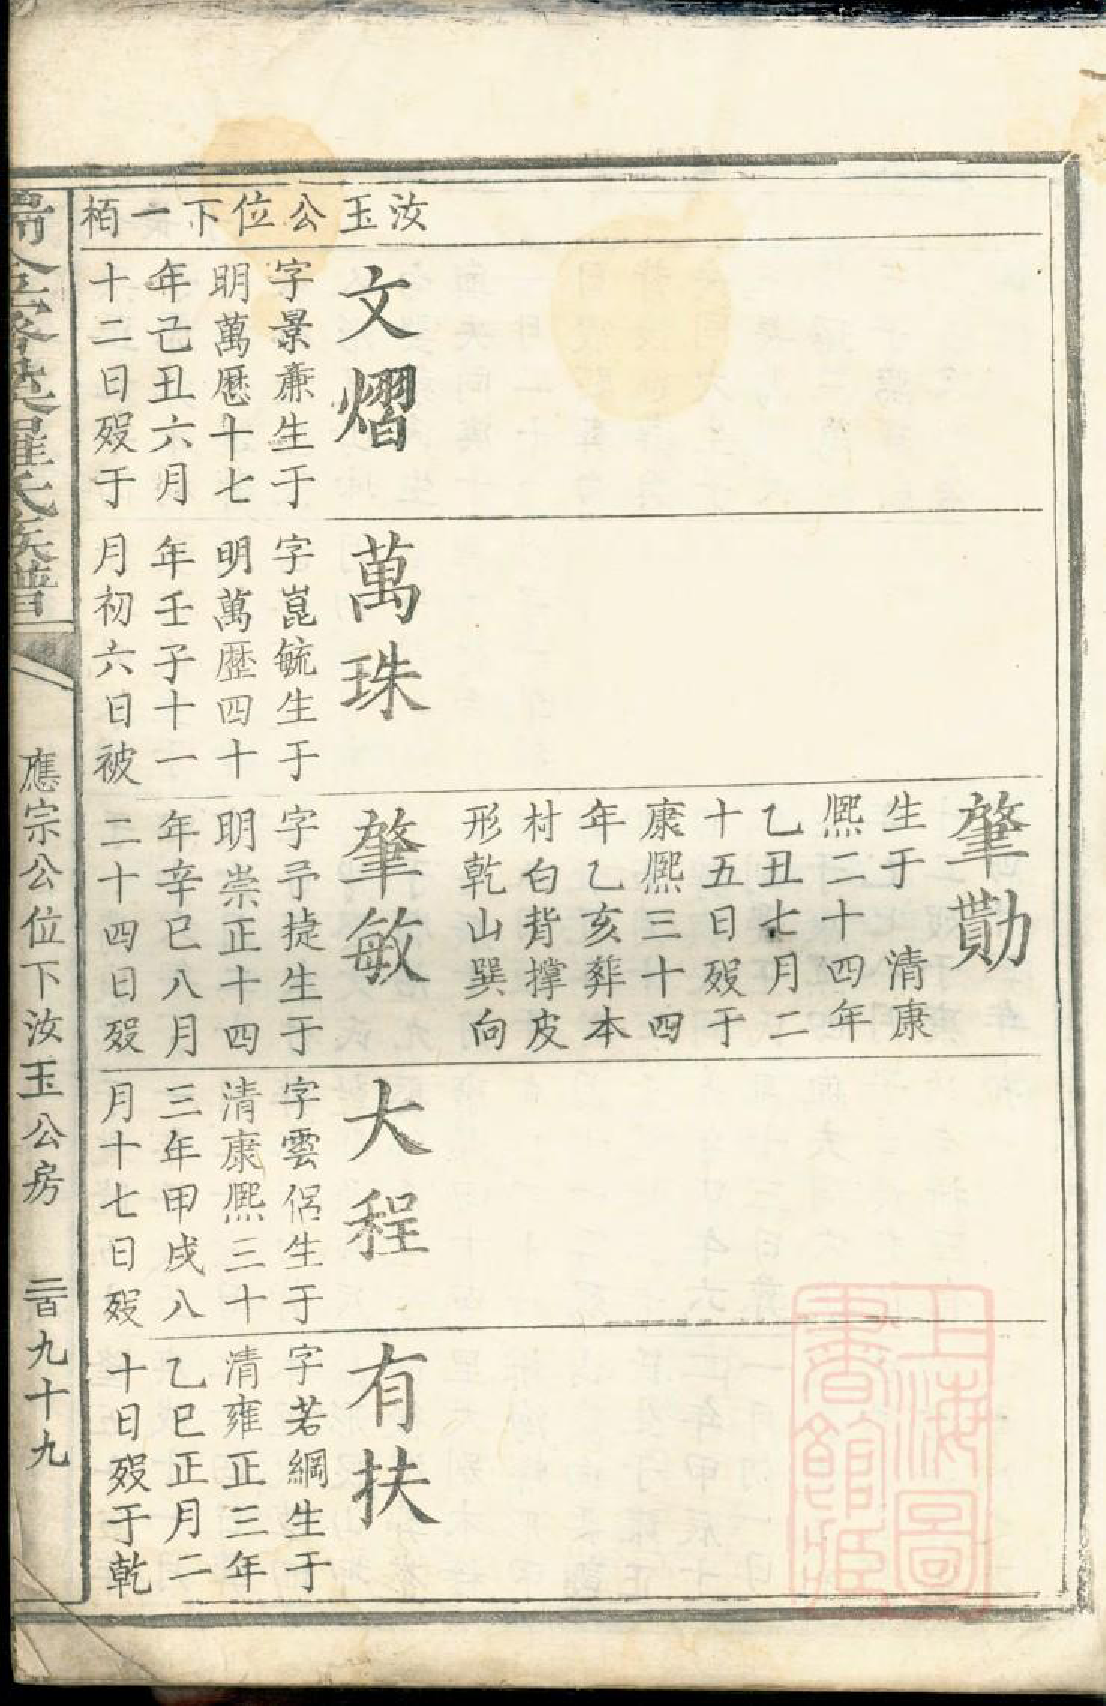 汝玉公位下一栢
文熠
字景亷生于
明萬曆十七
年己丑六月
十二日歿于
萬珠
字崑毓生于
明萬歷四十
年壬子十一
月初六日被
肇勛
生于　清康
熙二十四年
乙丑七月二
十五日歿于
康熙三十四
年乙亥葬本
村白背撑皮
形乾山巽向
肇敏
字予捷生于
明崇正十四
年辛巳八月
二十四日歿
大程
字雲侣生于
清康熙三十
三年甲戌八
月十七日歿
有扶
字若綱生于
清雍正三年
乙巳正月二
十日歿于乾
羅氏族譜
應宗公位下汝玉公房
二百九十九
上海圖
書館藏